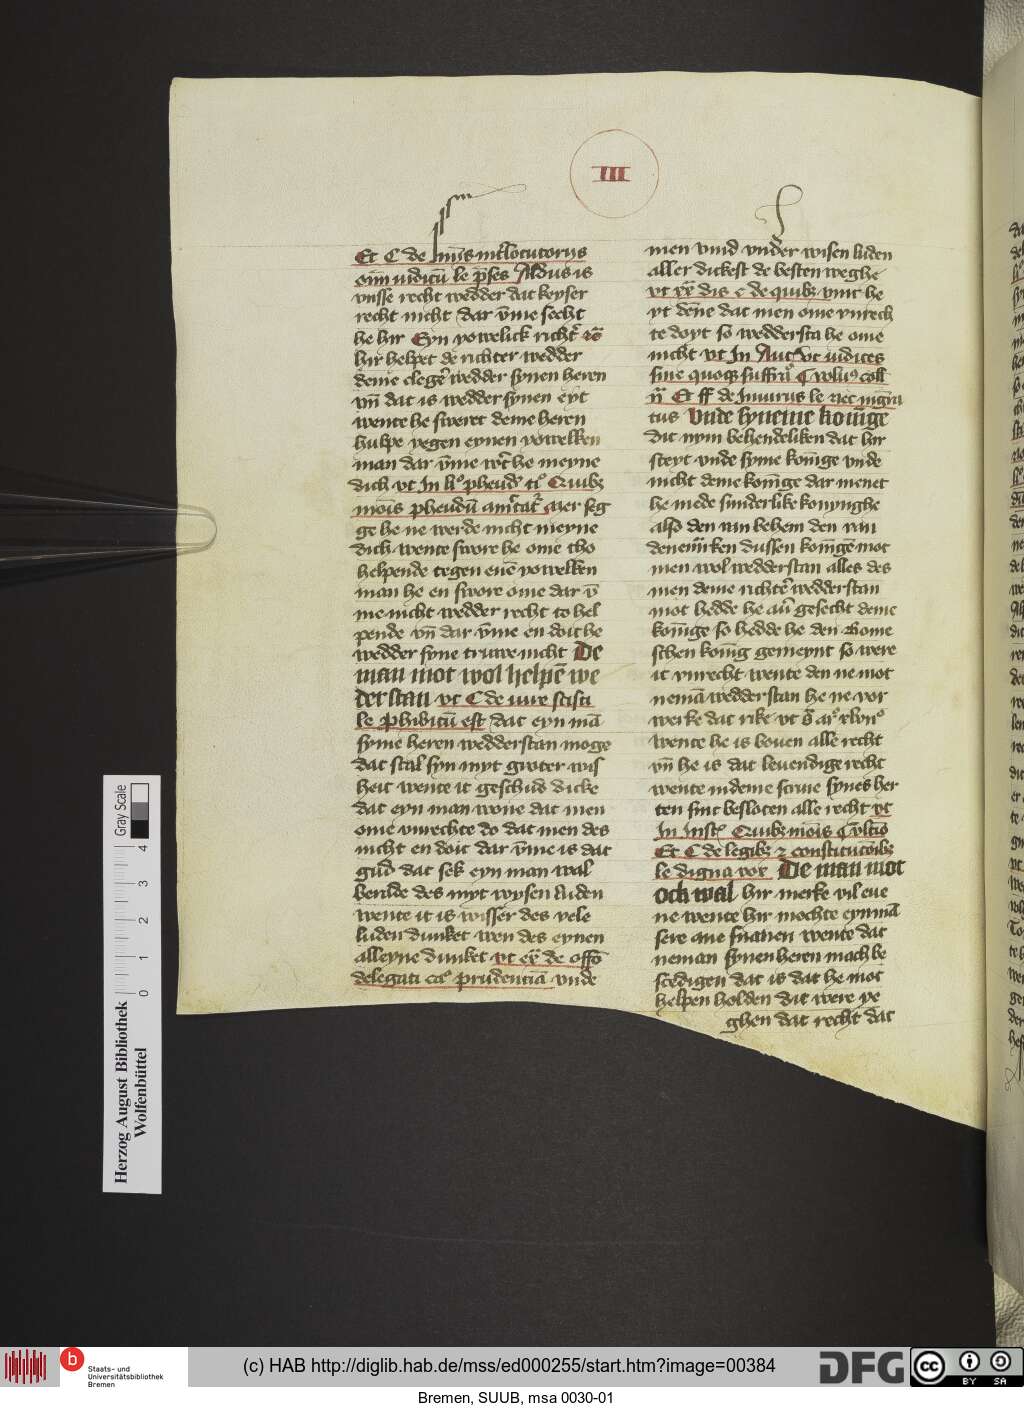 III
Et C de sniis int̄locutoriis
oīm iudicū le p̄ses Aldus is
vnse recht wedder dat keyser
recht nicht dar v̄me secht
he hir Eyn yowelick richt͛
hir helpet de richter wedder
deme cleger wedder synen heren
vn̄ dat is wedder synen eyt
wente he sweret deme heren
hulpe yegen eynen yowelken
man dar v̄me he meyne
dich vt In
ge he ne werde nicht meyne
dich wente swore he ome tho
helpende tegen enē yowelken
man he en swore ome dar v̄
me nicht wedder recht to hel
pende vn̄ dar v̄me en doit he
wedder syne truwe nicht De
man mot wol helpē we
derstan vt C de iure
le phibitū est dat eyn mā
syme heren wedderstan moge
dat scal syn myt groter wis
heit wente it geschud dicke
dat eyn man wone dat men
ome vnrechte do dat men des
nicht en doit dar v̄me is dat
gud dat sek eyn man wal
berade des myt wysen luden
wente it is wisser des vele
luden dunket wen des eynen
alleyne dunket vt ex̄ de offō
delegati prudentiā vnde
men vnid vnder wisen luden
aller dickest de besten weghe
vt de quibz vmt he
yt dēne dat men ome vnrech
te doyt so weddersta he ome
nicht vt In Aut͛ vt iudices
sine quoqz suffra
Et ff de Iniuriis le nec
tus Vnde syneme konīge
Dit nym behendeliken dat hir
steyt vnde syme konīge vnde
nicht deme konīge dar menet
he mede sunderlike konynghe
also den van behem den van
denemīrken dussen konīgē mot
men wol wedderstan alles des
men deme richter wedderstan
mot hedde he auer gesecht deme
konīge so hedde he den Rome
schen konīg gemeynt so were
it vnrecht wente den ne mot
nemā wedderstan he ne vor
werke dat rike vt
wente he is bouen alle recht
vn̄ he is dat leuendige recht
wente indeme scrine synes her
ten sint besloten alle recht vt
In Inst͛ Quibz mōis
Et C de legibz z constitucōibz
le digna vox De man mot
och wal hir merke vil eue
ne wente hir mochte eynmā
sere ane wente dat
neman synen heren mach be
scedigen dat is dat he mot
helpen holden dit were ye
ghen dat recht dat
Gray Scale
0 1 2 3 4
Herzog August Bibliothek
Wolfenbüttel
b
Staats- und
Universitätsbibliothek
Bremen
(c) HAB http://diglib.hab.de/mss/ed000255/start.htm?image=00384
DFG
cc BY SA
Bremen, SUUB, msa 0030-01